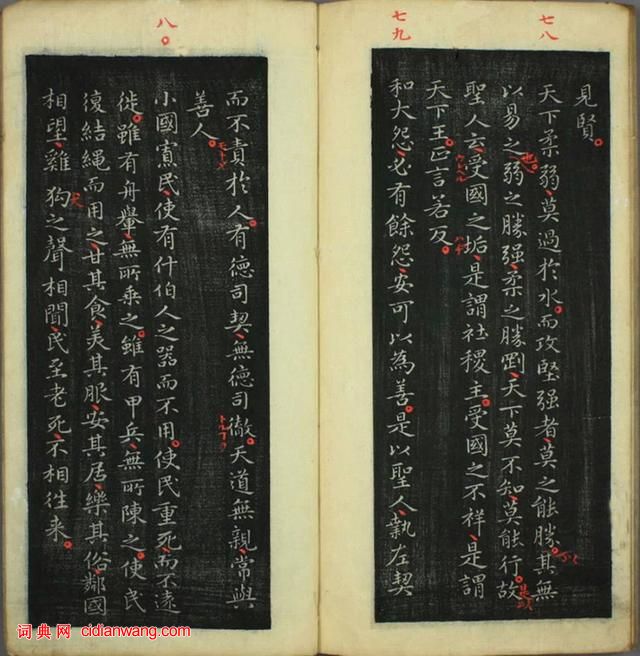 七八
見賢。
天下柔弱、莫過於水。而攻堅强者、莫之能勝。其無
以易之。弱之勝强、柔之勝剛、天下莫不知、莫能行。故
也
是以
聖人云、受國之垢、是謂社稷主。受國之不祥、是謂
天下王。正言若反。
七九
和大怨、必有餘怨、安可以為善。是以聖人執左契
八。
而不責於人。有德司契、無德司徹。天道無親、常與
モトメ
善人。
小國寡民、使有什伯人之器而不用。使民重死、而不遠
徙。雖有舟轝、無所乘之。雖有甲兵、無所陳之。使民
復結繩而用之、甘其食、美其服、安其居、樂其俗、鄰國
相望、雞狗之聲相聞、民至老死、不相往来。
犬
词典网 cidianwang.com